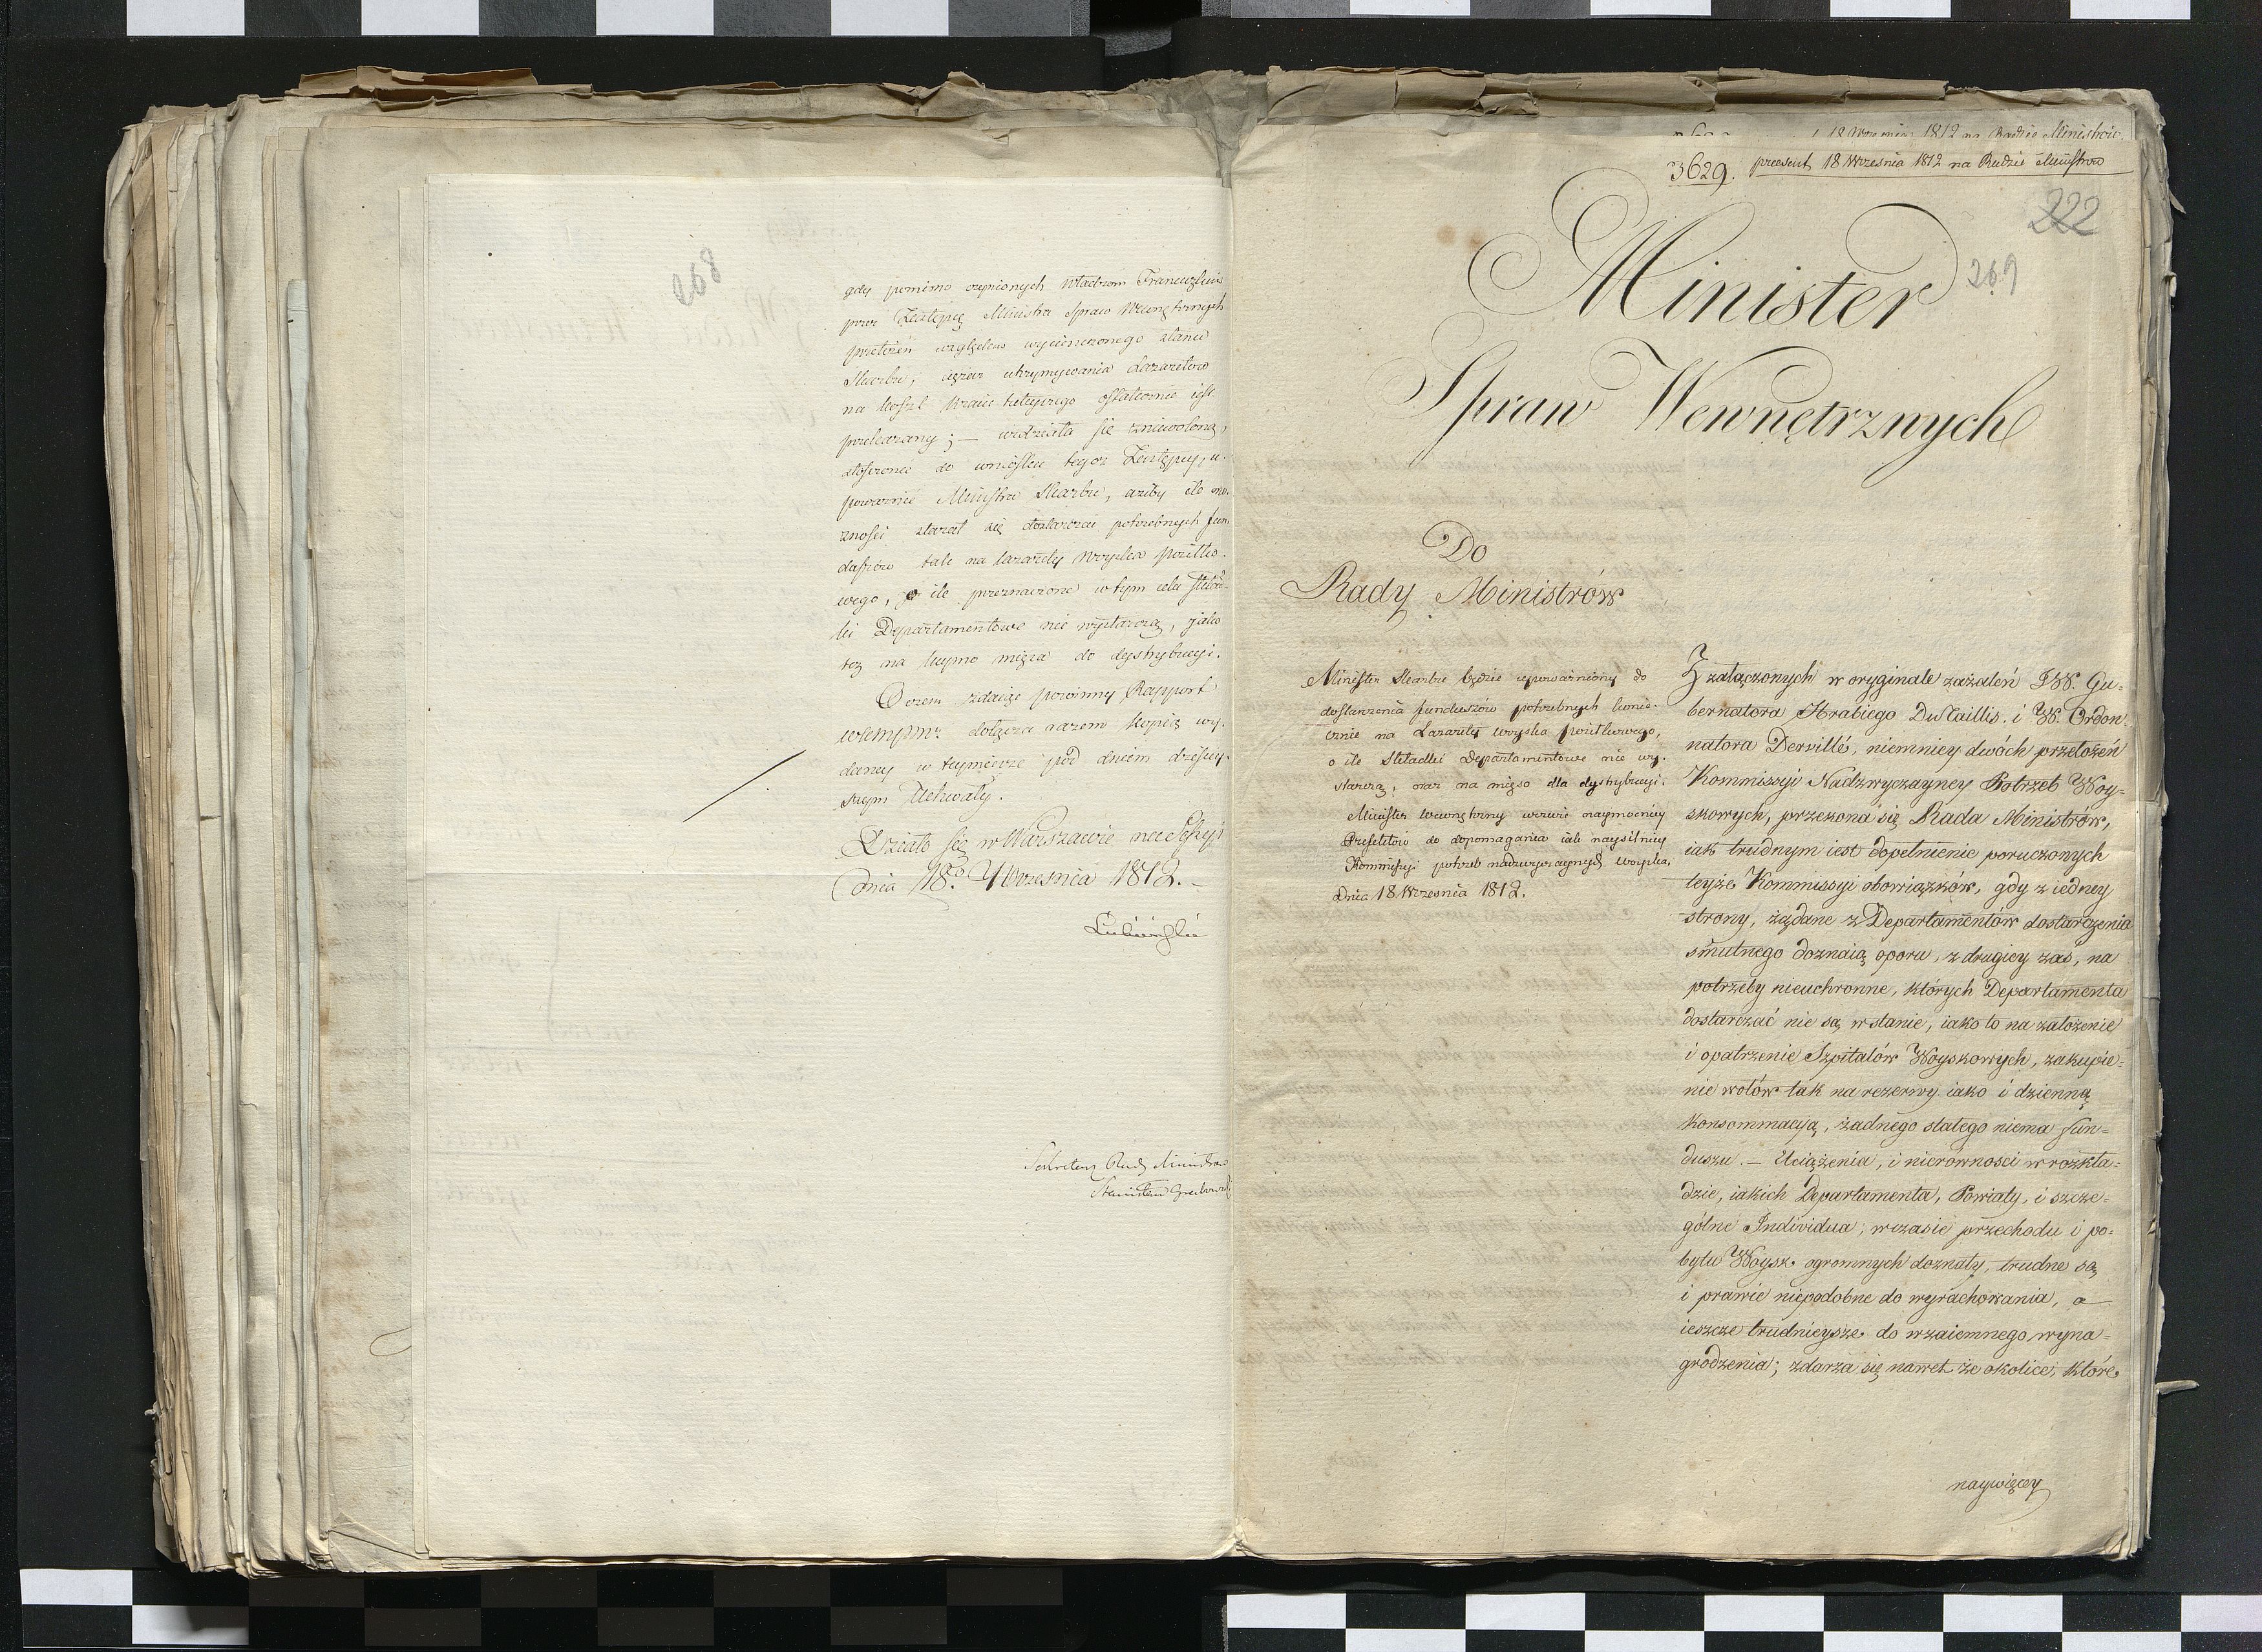 268
gdy pomimo czynionych Władzom Francuzkim
przez Zastępcę Ministra Spraw Wewnętrznych
przełożeń względem wycienczonego stanu
Skarbu, ciężar utrzymywania Lazaretow
na koszt kraiu tuteyszego ostatecznie jest
przekazany; — widziała się zniewoloną,
stosownie do wniosku tegoż Zastępcy, u-
poważnić Ministra Skarbu, ażeby ile mo-
żności starał się dostarczać potrzebnych fun-
duszów tak na lazarety Woyska posiłko-
wego, o ile przeznaczone w tym celu skład-
ki Departamentowe nie wystarczą, jako
też na kupno mięsa do dystrybucyi.
O czem zdaiąc powinny Rapport
dołącza razem kopią wy-
daney w teymierze pod dniem dzisiey-
szym Uchwały.
Działo się w Warszawie na Sessyi
dnia 18.go Września 1812. –
Lubieński
Sekretarz Rady Ministrów
Stanisław Grabowski
18 Września 1812 na Radzie Ministrów
3629. praesent 18 Września 1812 na Radzie Ministrow
222
269
Minister
Spraw Wewnętrznych
Do
Rady Ministrów
Minister Skarbu będzie upoważniony do
dostarczenia funduszów potrzebnych koniecznie
na Lazarety woyska posiłkowego,
o ile Składki Departamentowe nie wy-
starczą, oraz na mięso dla dystrybucyi.
Minister Wewnętrzny wezwie naymocniey
Prefektów do dopomagania iak naysilniey
Kommissyi potrzeb nadzwyczaynych woyska,
Dnia 18 Września 1812.
Z załączonych w oryginale zażaleń JW. Gu-
bernatora Hrabiego DuTaillis, i W. Ordon-
natora Dervillé, niemniey dwóch przełożeń
Kommissyi Nadzwyczayney Potrzeb Woy-
skowych, przekona się Rada Ministrów,
iak trudnym iest dopełnienie poruczonych
teyże Kommissyi obowiązków, gdy z iedney
strony, żądane z Departamentów dostarczenia
smutnego doznaią oporu, z drugiey zaś, na
potrzeby nieuchronne, których Departamenta
dostarczać nie są w stanie, iako to na założenie
i opatrzenie Szpitalów Woyskowych, zakupie-
nie wołów tak na rezerwy iako i dzienną
konsommacyą, żadnego stałego niema fun-
duszu. – Uciążenia, i nierówności w rozkła-
dzie, iakich Departamenta, Powiaty, i szcze-
gólne Individua, w czasie przechodu i po-
bytu Woysk ogromnych doznały, trudne są
i prawie niepodobne do wyrachowania, a
ieszcze trudnieysze do wzaiemnego wyna-
grodzenia; zdarza się nawet że okolice, które
naywięcey